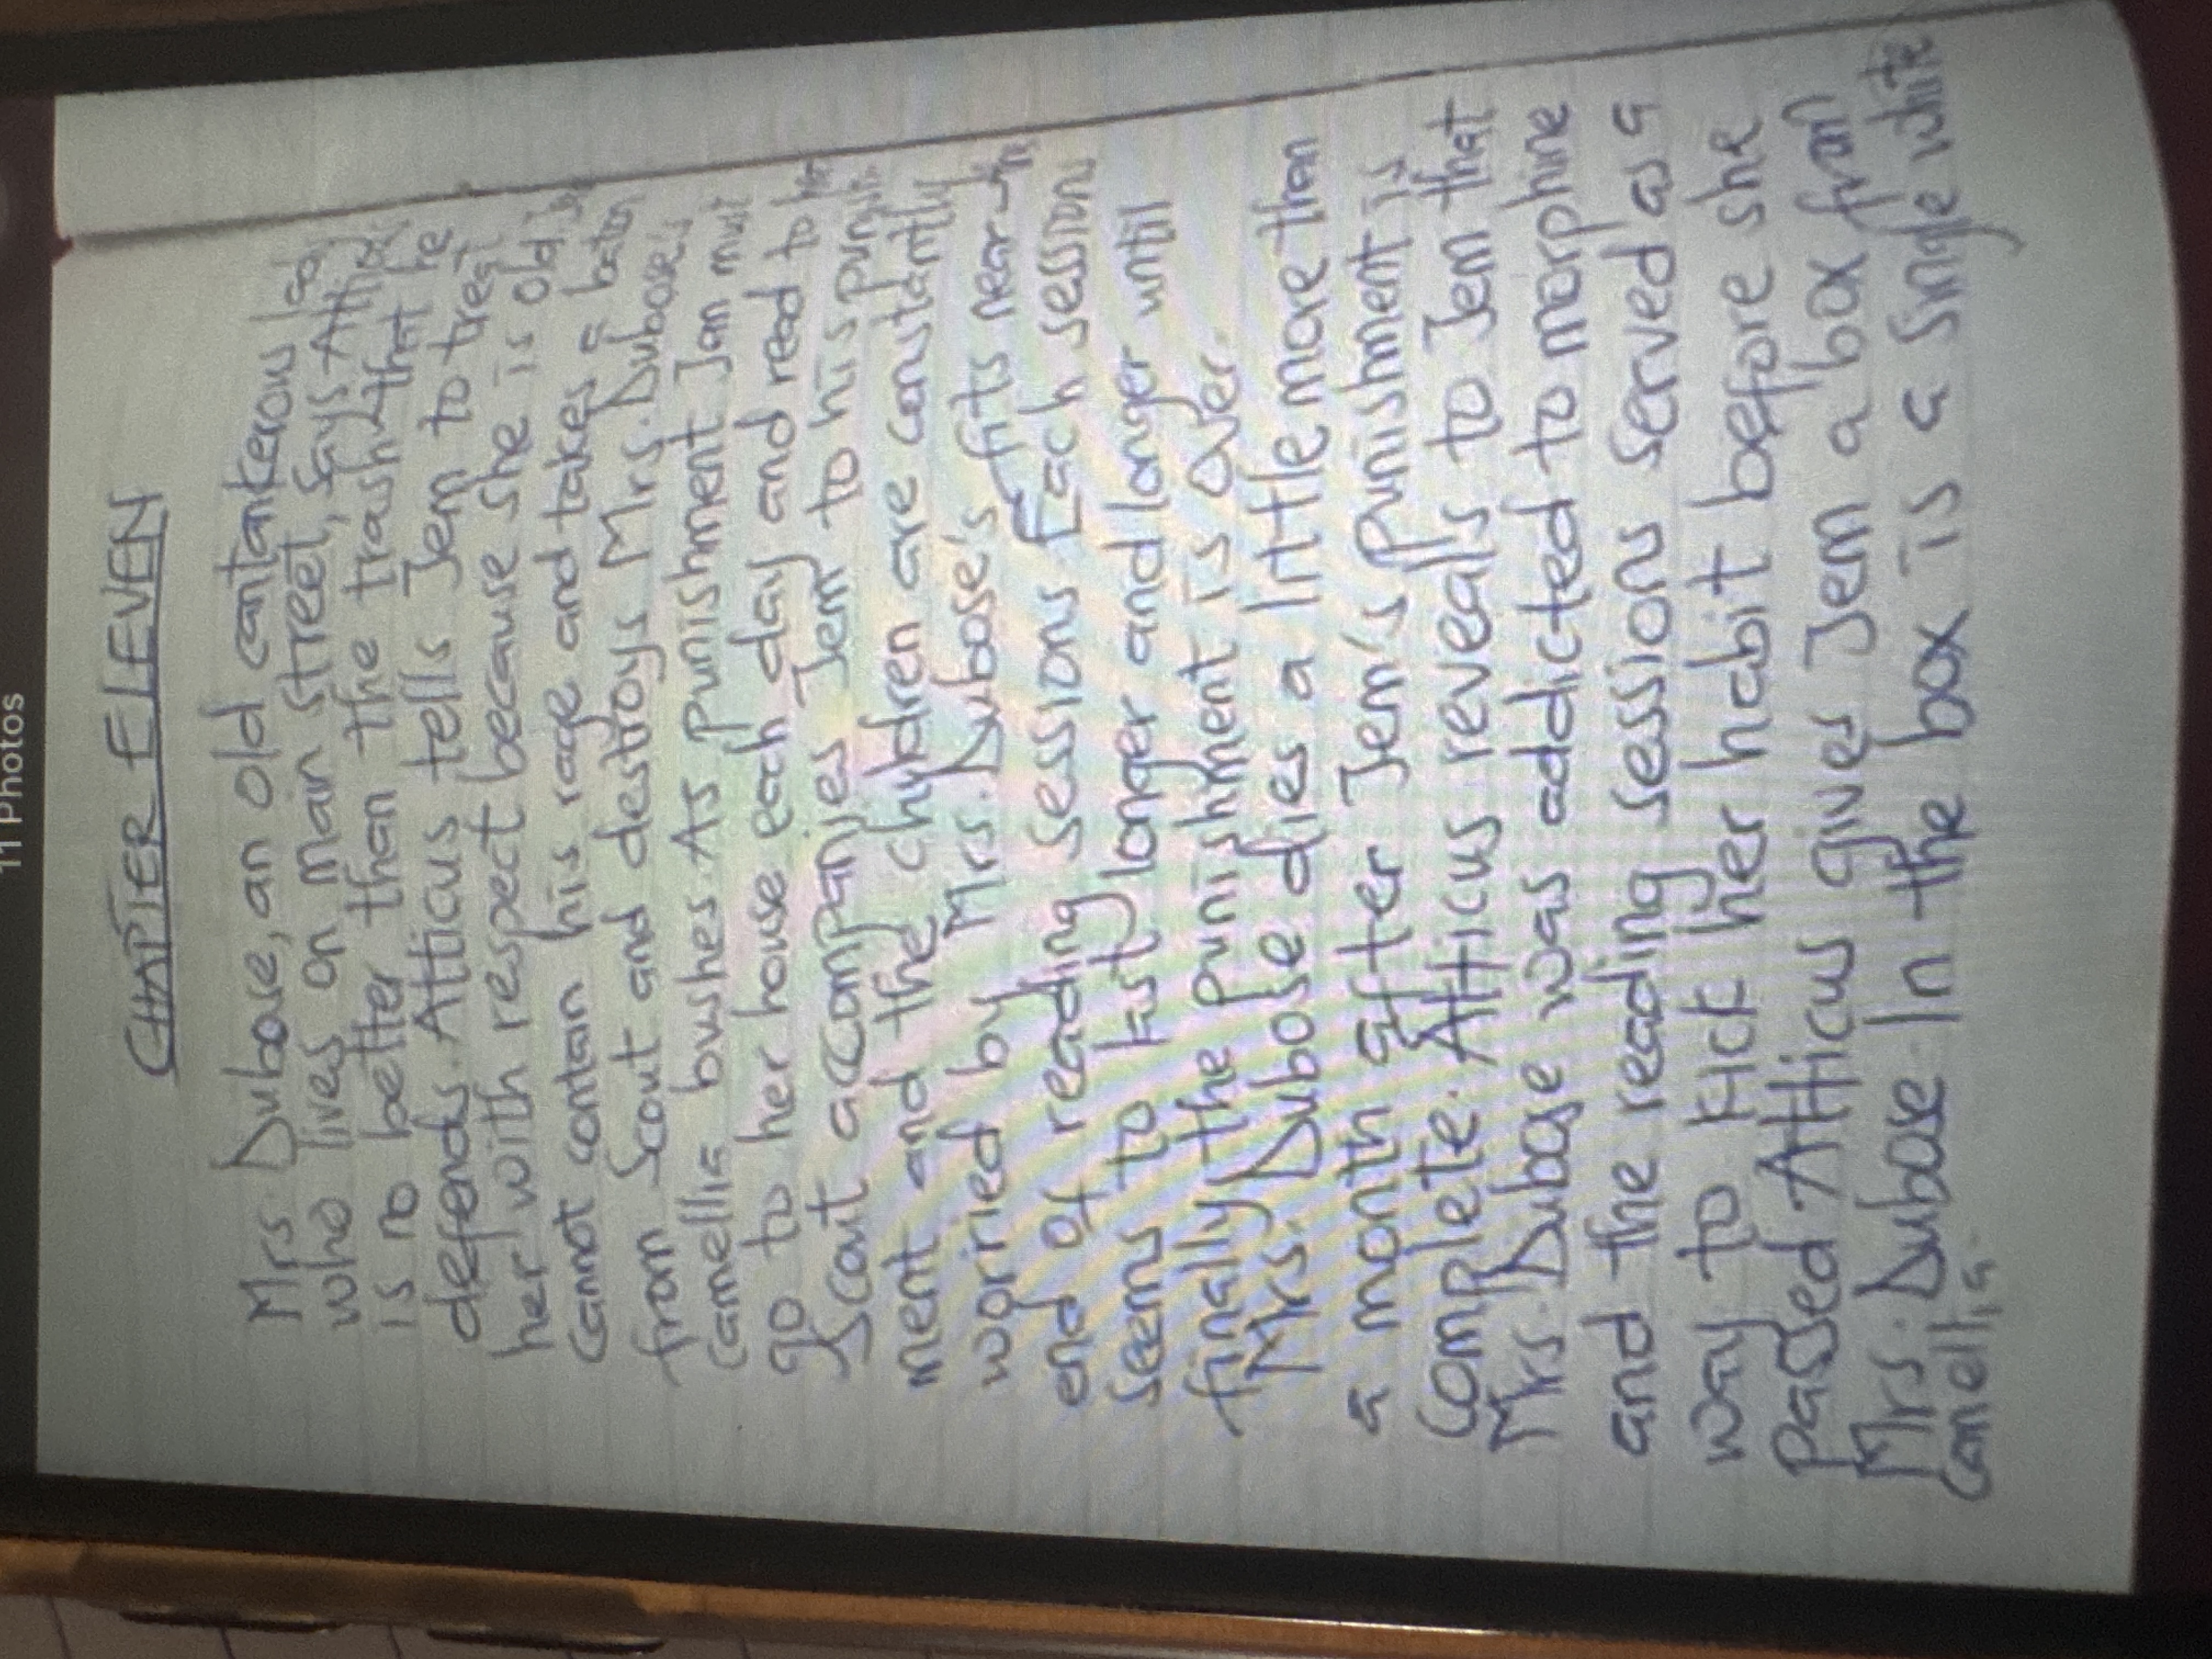 11 Photos
CHAPTER ELEVEN
Mrs. Dubose, an old cantankerous lady
who lives on main street, says Atticus
is no better than the trash that he
defends. Atticus tells Jem to treat
her with respect because she is old. Jem
cannot contain his rage and takes a baton
from Scout and destroys Mrs. Dubose's
camellia bushes. As punishment Jem must
go to her house each day and read to her
Scout accompanies Jem to his punish-
ment and the children are constantly
worried by Mrs. Dubose's fits near the
end of reading sessions Each sessions
seems to last longer and longer until
finally, the punishment is over.
Mrs. Dubose dies a little more than
a month after Jem's punishment is
complete. Atticus reveals to Jem that
Mrs. Dubose was addicted to morphine
and the reading sessions served as a
way to kick her habit before she
passed Atticus gives Jem a box from
Mrs. Dubose. In the box is a single white
Camellia.